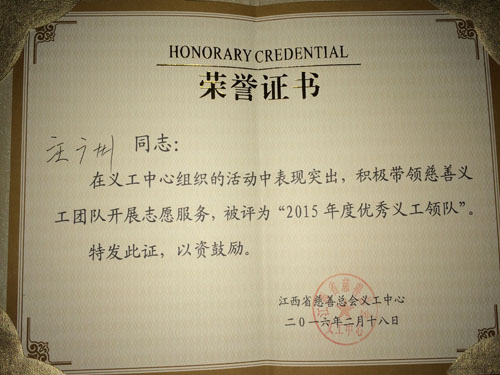 HONORARY CREDENTIAL
荣誉证书
同志：
在义工中心组织的活动中表现突出，积极带领慈善义
工团队开展志愿服务，被评为“2015年度优秀义工领队”。
特发此证，以资鼓励。
江西省慈善总会义工中心
二0一六年二月十八日